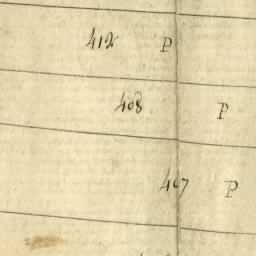 412 P
408 P
407 P